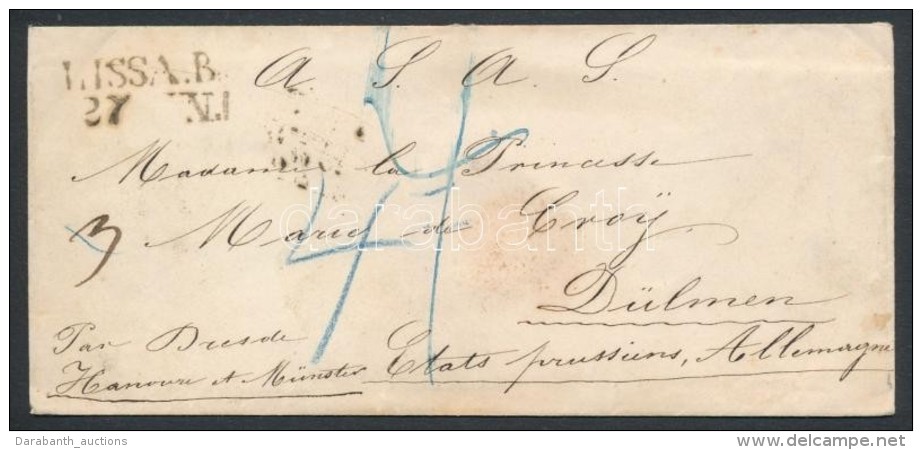 LISSA.B.
27 N.I
A S. A. S.
Madame la Princesse
3 Marie de Croÿ
Dülmen
Par Dresde
Hanovre et Münster Etats prussiens, Allemagne
4
darabanth
Darabanth_auctions
http://www.delcampe.net